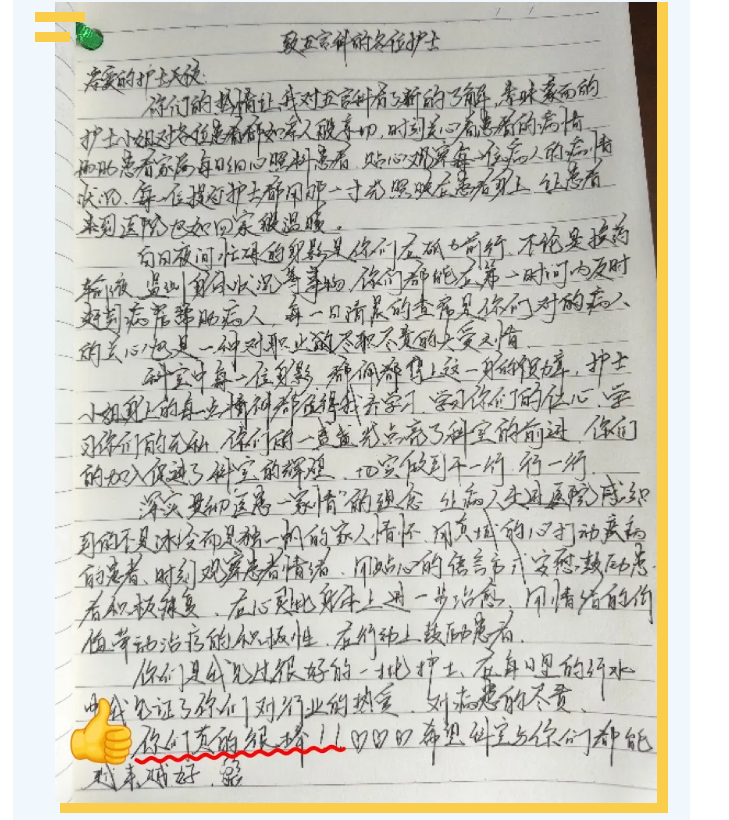 致五官科的各位护士
亲爱的护士天使：
你们的热情让我对五官科有了新的了解，素昧蒙面的
护士小姐对各位患者都如亲人般亲切，时刻关心着患者的病情
帮助患者家属每日细心照料患者，贴心观察每一位病人的病情
状况，每一位护士都用那一寸光照映在患者身上，让患者
来到医院也如回家般温暖。
白日夜间忙碌的身影是你们在砥力前行，不论是换药
输液、监测身体状况等事物，你们都能在第一时间内及时
赶到病房帮助病人，每一日清晨的查房是你们对的病人
的关心也是一种对职业的尽职尽责的上受之情
科室中每一位身影，都佩都得上这一身的很，护士
小姐身上的每一点情神都值得我去学习，学习你们的仁心，学
习你们的无私，你们的一盏盏光点亮了科室的前进，你们
的加入促进了科室的辉煌，切实做到干一行，行一行。
深实贯彻医患一家情“的理念，让病人走进医院感知
到的不是冰冷而是独一的家人情怀，用真挚的心打动疾病
的患者，时刻观察患者情绪，用贴心的语言方式安慰、鼓励患
者积极康复，在心到此身体上进一步治愈，用情绪的价
值带动治疗的积极性，在行动上鼓励患者。
你们是我见过很好的一批护士，在每日里的行水
中我见证了你们对行业的热爱，对病患的尽责，
你们真的很棒！！♡♡♡希望科室与你们都能
越来越好，